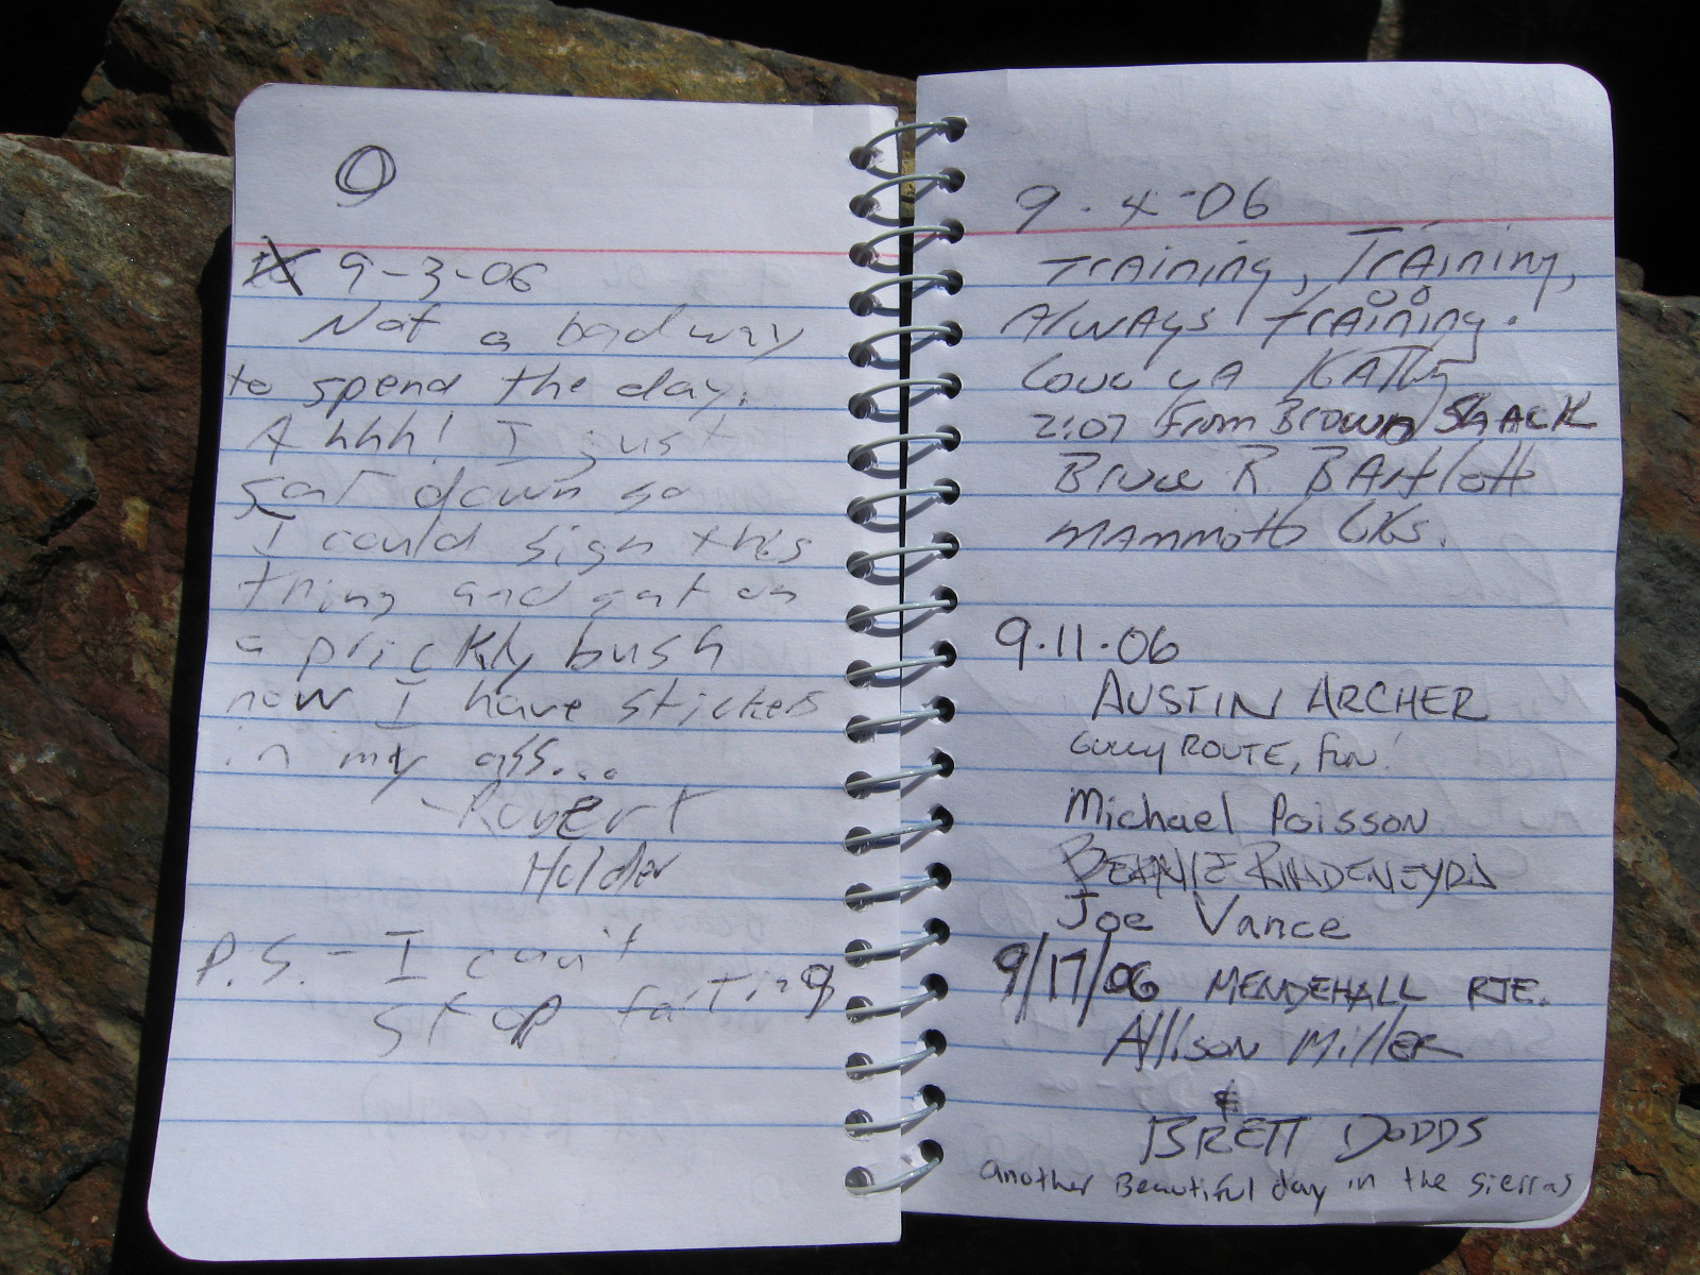 9-3-06
Not a bad way
to spend the day.
Ahhh! I just
sat down so
I could sign this
thing and sat on
a prickly bush
now I have stickers
in my ass...
-Robert
Holder
P.S. - I can't
stop farting
9-4-06
Training, Training,
Always training.
Love ya Kathy
2:07 From Brown Shack
Bruce R. Bartlett
Mammoth Lks.
9.11.06
AUSTIN ARCHER
Gully ROUTE, FUN!
Michael Poisson
BERNIE
Joe Vance
9/17/06 MENDEHALL RTE.
Allison Miller
&
BRETT DODDS
another Beautiful day in the sierras